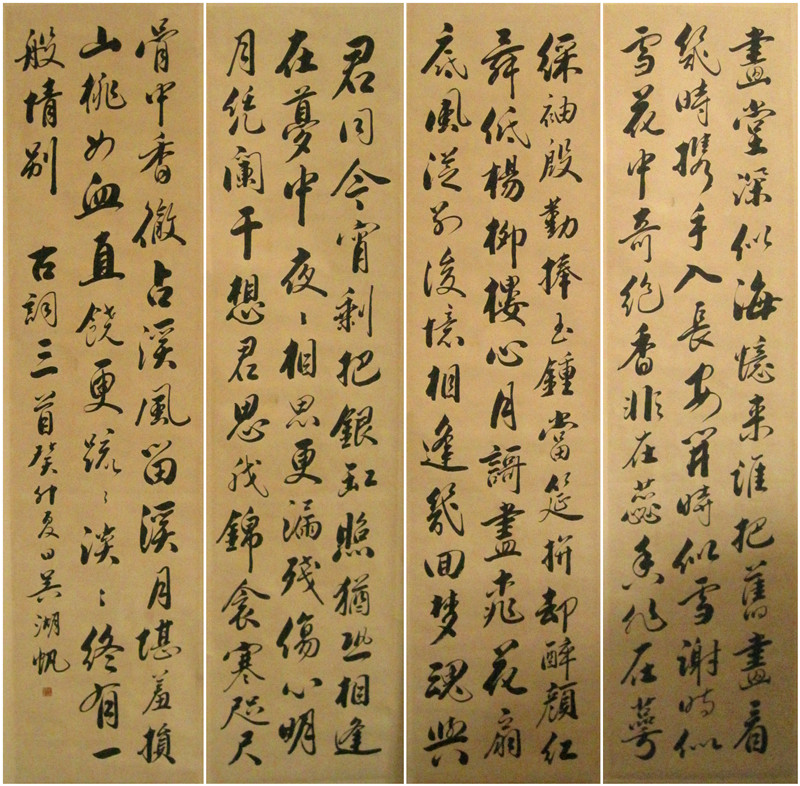 畫堂深似海憶來誰把舊畫看
幾時携手入長安開時似雪謝時似
雪花中奇絕香非在蕊香非在萼
綵袖殷勤捧玉鍾當筵拼却醉顏紅
舞低楊柳樓心月謌盡桃花扇
底風從別後憶相逢幾回夢魂與
君同今宵剩把銀缸照猶恐相逢
在夢中夜〻相思更漏殘傷心明
月凭闌干想君思我錦衾寒咫尺
骨中香徹占溪風留溪月堪羞損
山桃如血直饒更疏〻淡〻終有一
般情別 古詞三首癸卯夏日吳湖帆